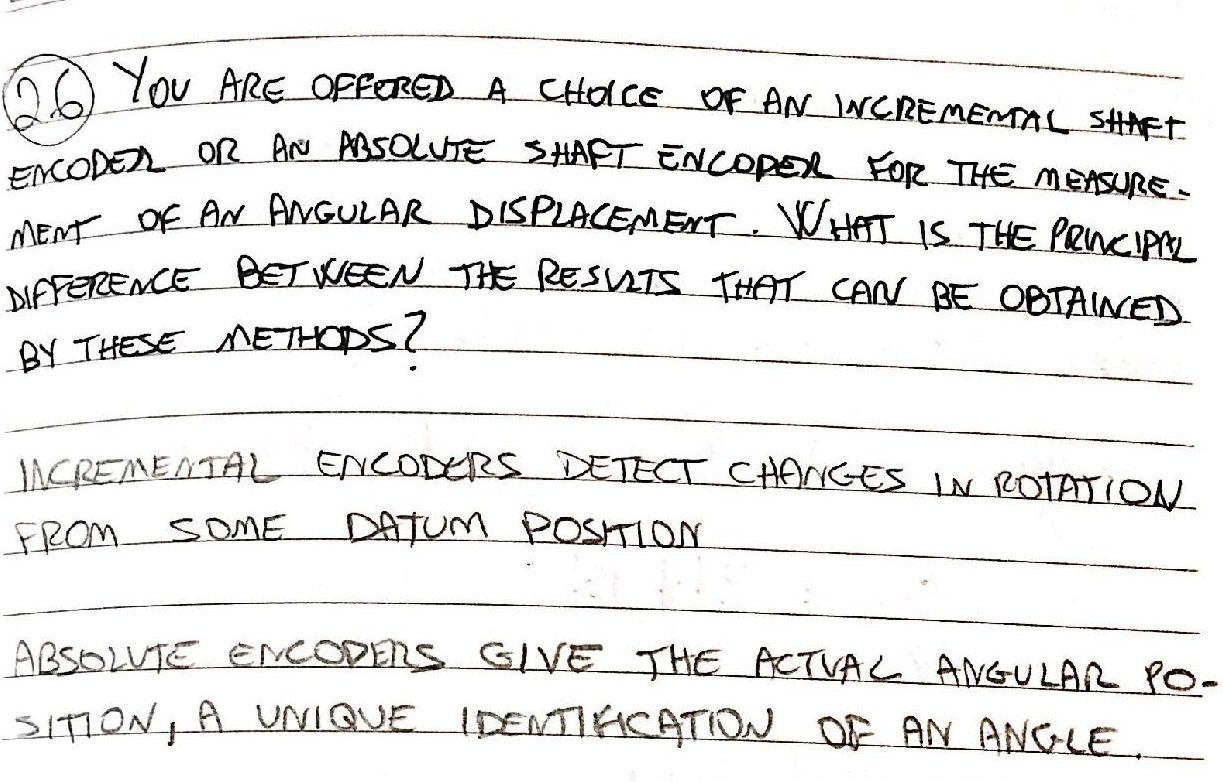 26 YOU ARE OFFERED A CHOICE OF AN INCREMENTAL SHAFT
ENCODER OR AN ABSOLUTE SHAFT ENCODER FOR THE MEASURE-
MENT OF AN ANGULAR DISPLACEMENT. WHAT IS THE PRINCIPAL
DIFFERENCE BETWEEN THE RESULTS THAT CAN BE OBTAINED
BY THESE METHODS?
INCREMENTAL ENCODERS DETECT CHANGES IN ROTATION
FROM SOME DATUM POSITION
ABSOLUTE ENCODERS GIVE THE ACTUAL ANGULAR PO-
SITION, A UNIQUE IDENTIFICATION OF AN ANGLE.